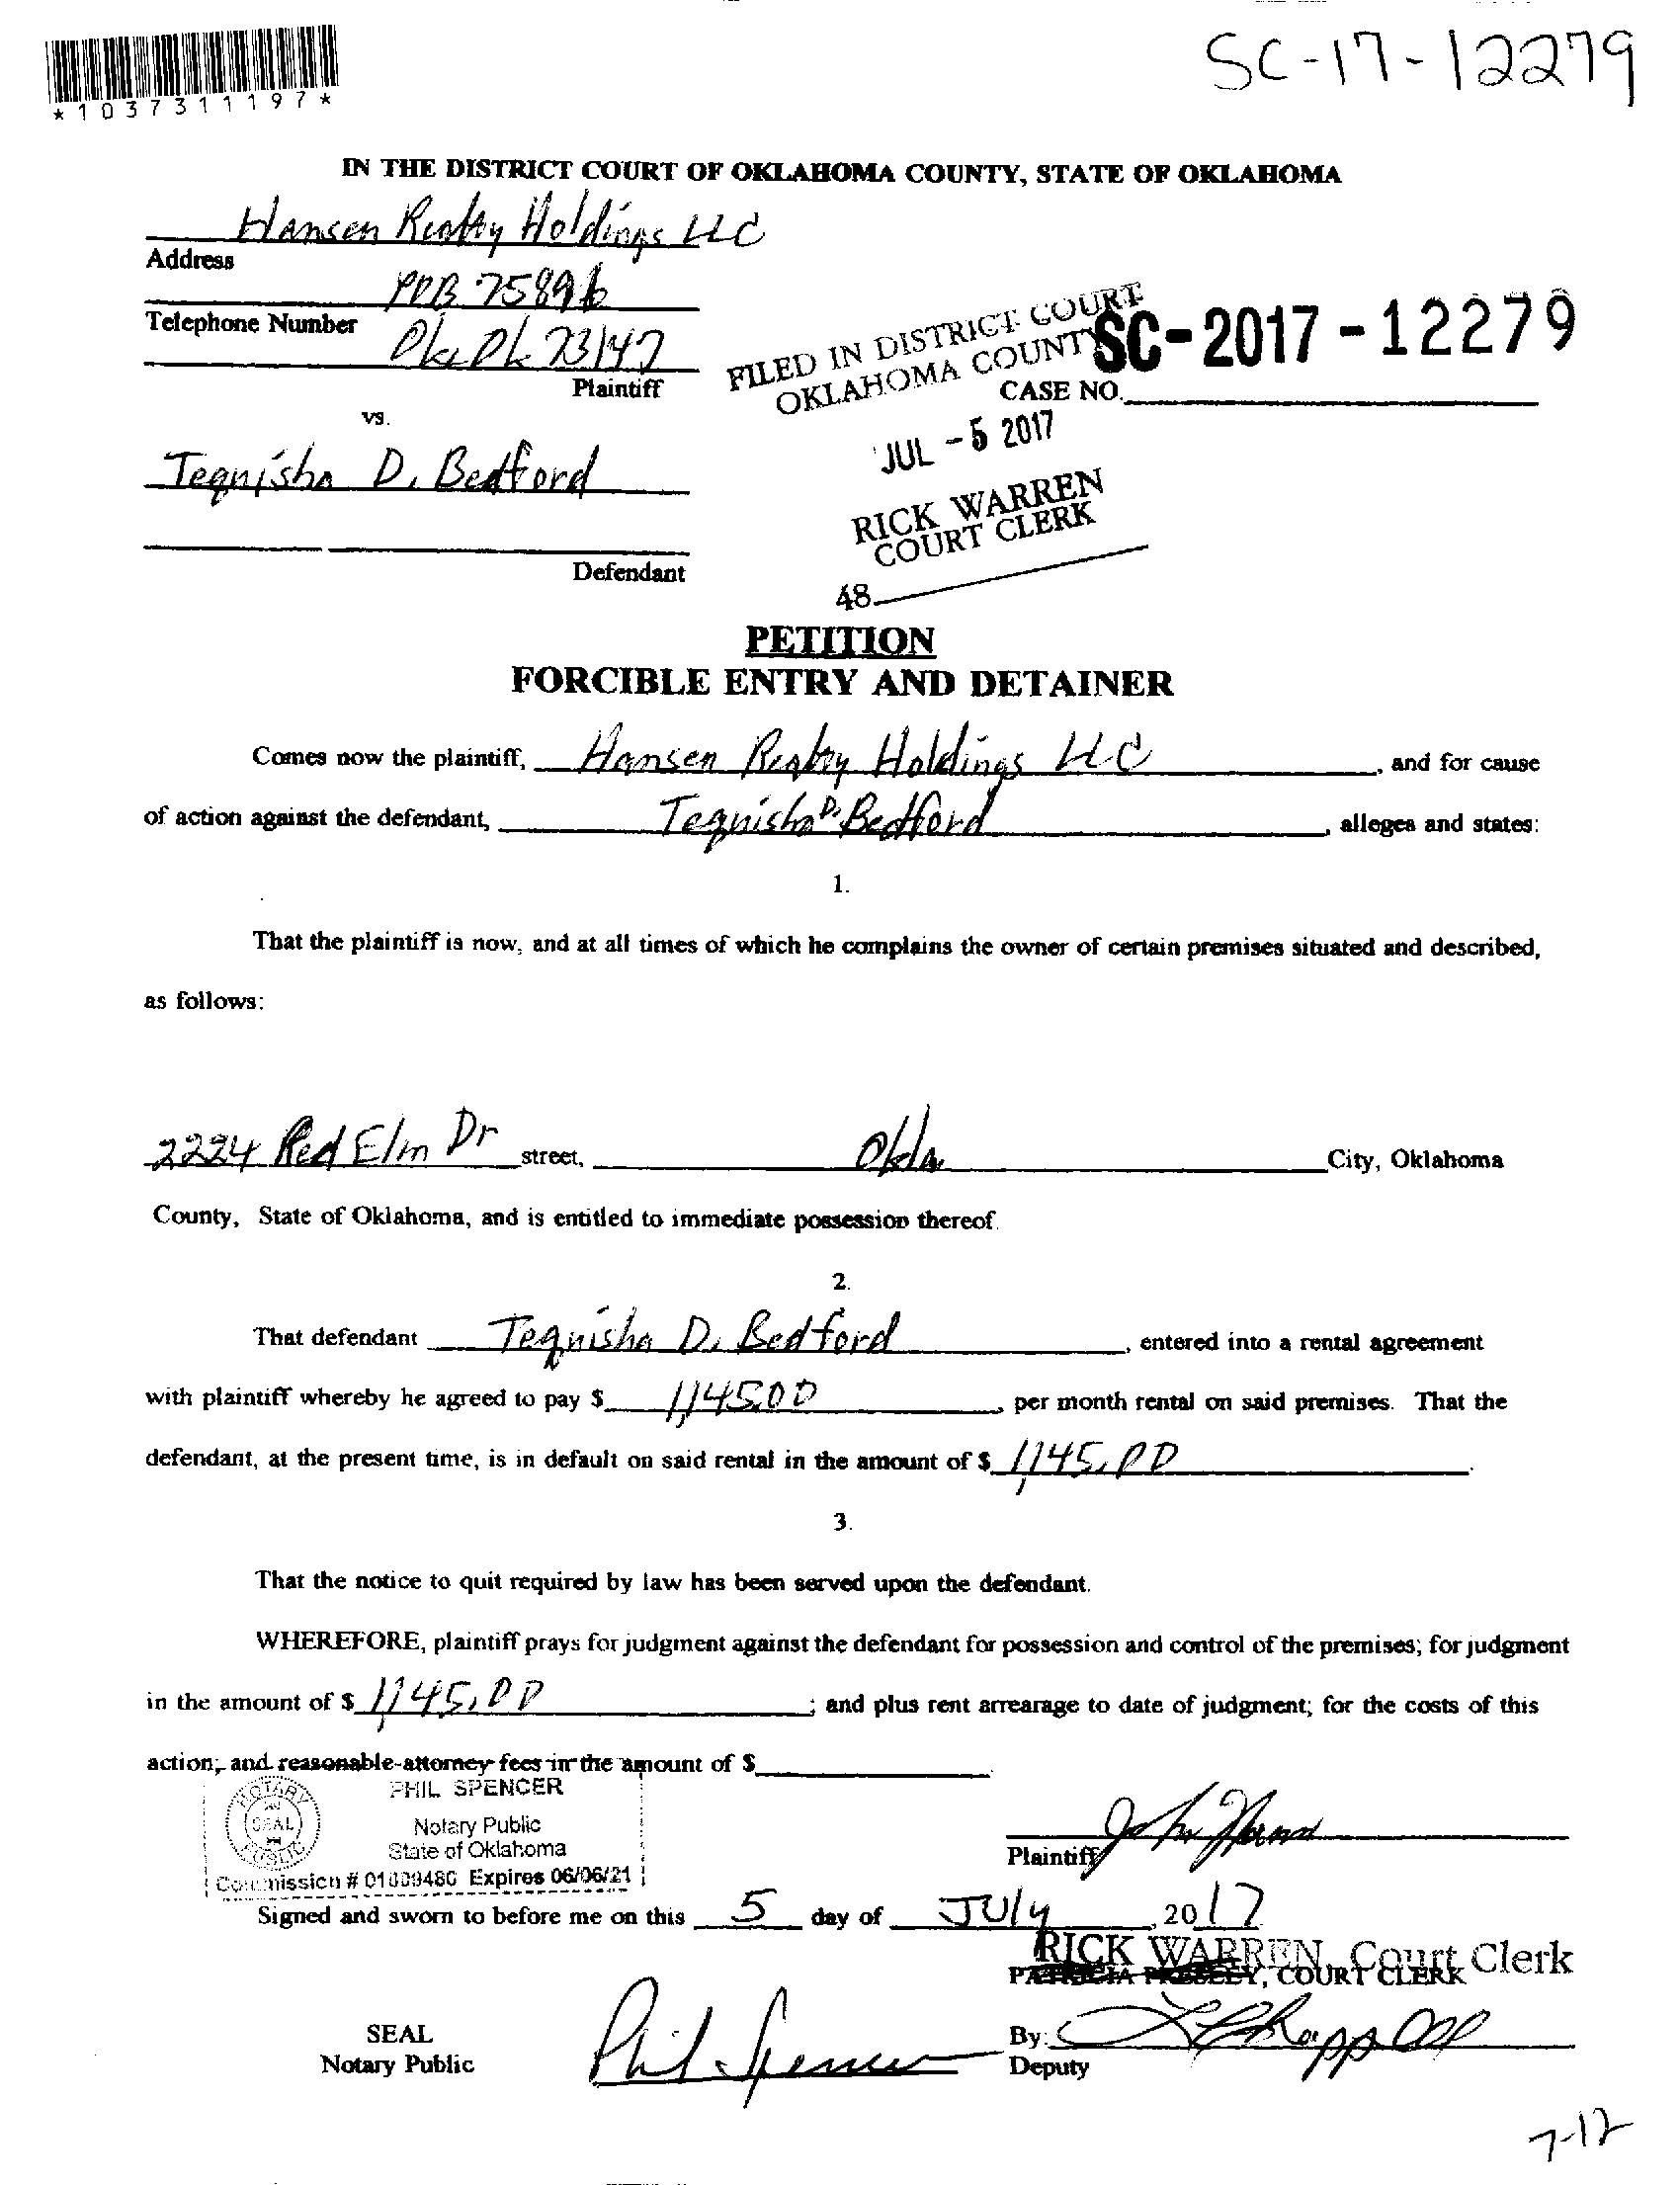 SC-17-12279
*1037311197*
IN THE DISTRICT COURT OF OKLAHOMA COUNTY, STATE OF OKLAHOMA
Hansen Realty Holdings LLC
Address
POB 75896
Telephone Number
Okc Ok 73147
Plaintiff
FILED IN DISTRICT COURT
OKLAHOMA COUNTY
SC-2017-12279
CASE NO.
vs.
JUL -5 2017
Tequisha D. Bedford
RICK WARREN
COURT CLERK
Defendant
48
PETITION
FORCIBLE ENTRY AND DETAINER
Comes now the plaintiff, Hansen Realty Holdings LLC, and for cause
of action against the defendant, Tequisha D. Bedford, alleges and states:
1.
That the plaintiff is now, and at all times of which he complains the owner of certain premises situated and described,
as follows:
2224 Red Elm Dr street, Okla City, Oklahoma
County, State of Oklahoma, and is entitled to immediate possession thereof.
2.
That defendant Tequisha D. Bedford, entered into a rental agreement
with plaintiff whereby he agreed to pay $ 1,145.00, per month rental on said premises. That the
defendant, at the present time, is in default on said rental in the amount of $ 1,145.00.
3.
That the notice to quit required by law has been served upon the defendant.
WHEREFORE, plaintiff prays for judgment against the defendant for possession and control of the premises; for judgment
in the amount of $ 1,145.00; and plus rent arrearage to date of judgment; for the costs of this
action; and reasonable attorney fees in the amount of $
PHIL SPENCER
NOTARY SEAL PUBLIC
Notary Public
State of Oklahoma
Commission # 01009480 Expires 06/06/21
Plaintiff
Signed and sworn to before me on this 5 day of July, 2017
RICK WARREN, Court Clerk
PATRICIA PRESLEY, COURT CLERK
SEAL
Notary Public
Phil Spencer
By:
Deputy
7-12